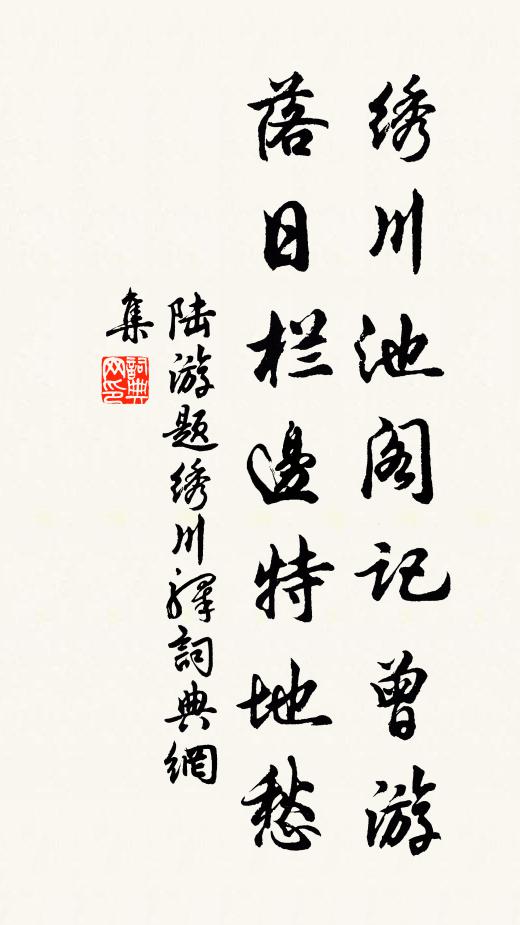 绣川池阁记曾游
落日栏邊特地愁
陆游题绣川驛詞典網
集
詞典网印